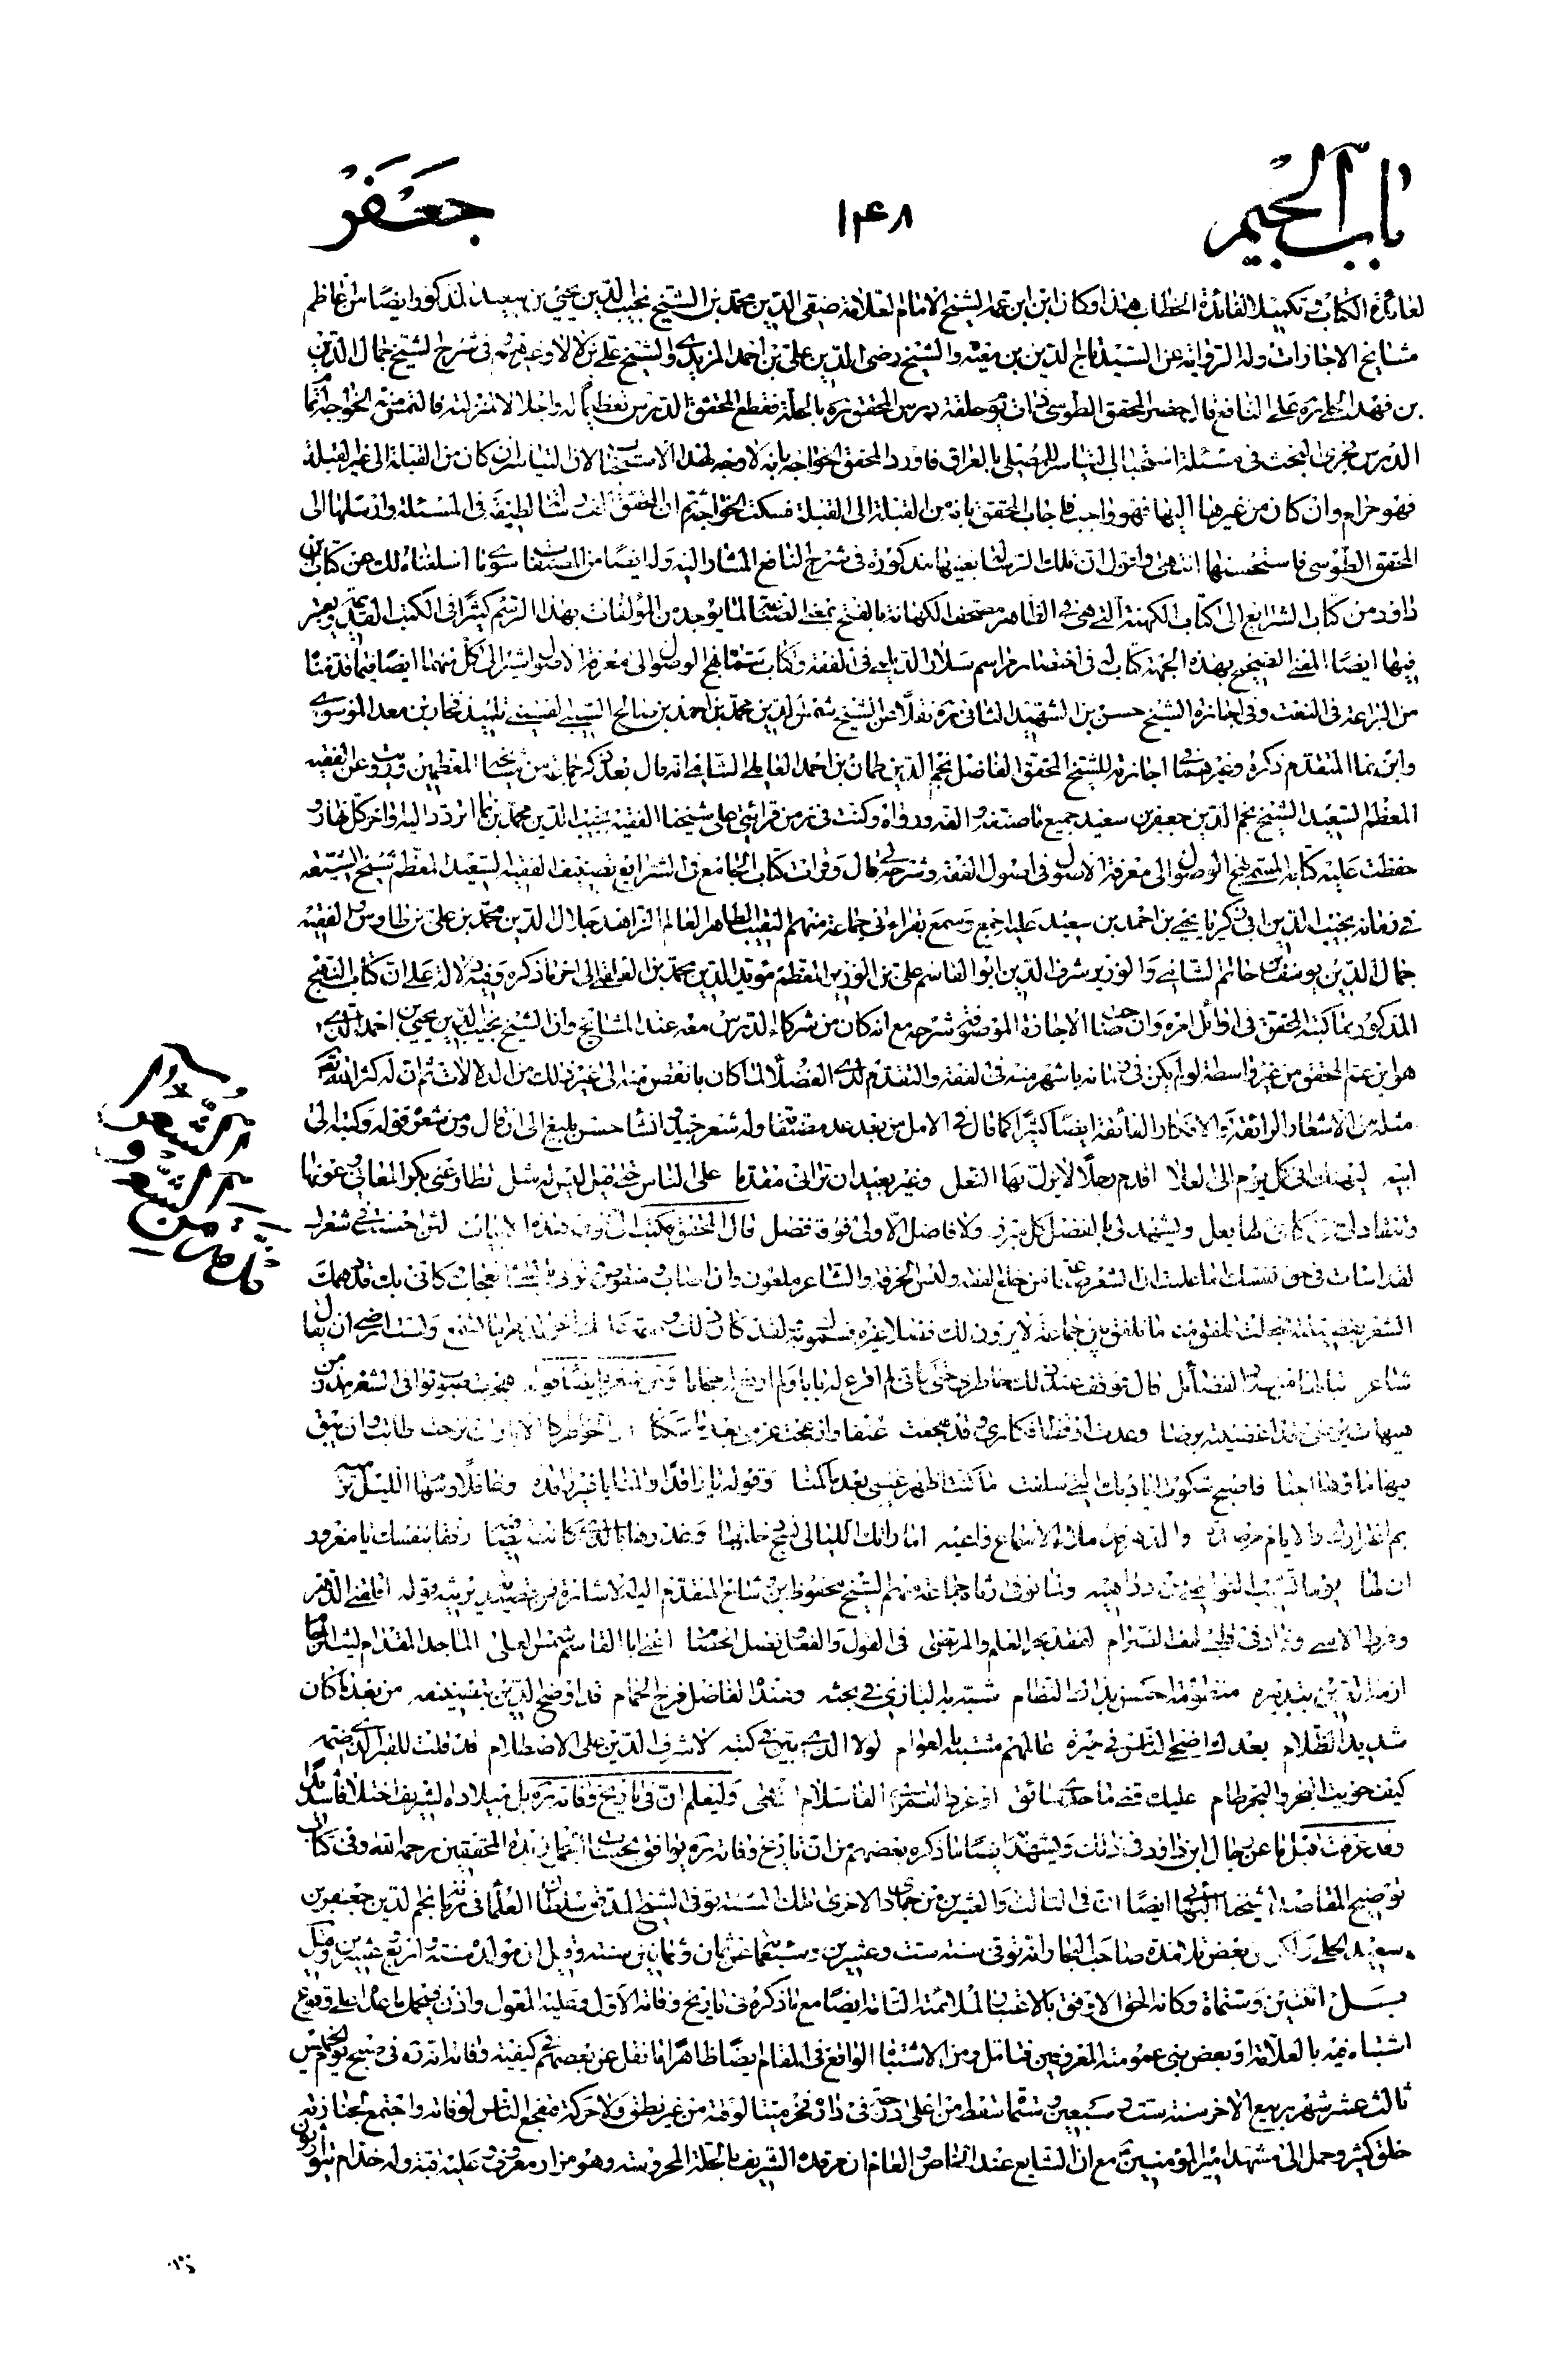 باب الجيم
١٤٨
جعفر
لعائدة الكتاب وتكميلا لفائدة الخطاب هذا وكان ابن ابن عمه الشيخ الامام العلامة صفي الدين محمد بن الشيخ نجيب الدين يحيى بن سعيد المذكور ايضا من اعاظم
مشايخ الاجازات وله الرواية عن السيد تاج الدين بن معية والشيخ رضى الدين على بن احمد المزيدي والشيخ على بن في شرح الشيخ جمال الدين
بن فهد الحلى ره على النافع قال حضر المحقق الطوسى ذات يوم حلقة درس المحقق ره بالحلة فقطع المحقق الدرس تعظيما له واجلالا لمنزلته فالتمس منه الخواجه اتمام
الدرس فجرى البحث في مسئلة استحباب التياسر للمصلى بالعراق فاورد المحقق الخواجه بانه لا وجه لهذا الاستحباب لان التياسر ان كان من القبلة الى غير القبلة
فهو حرام وان كان من غيرها اليها فهو واجب فاجاب المحقق بانه من القبلة الى القبلة فسكت الخواجه ثم ان المحقق الف رسالة لطيفة في المسئلة وارسلها الى
المحقق الطوسى فاستحسنها انتهى واقول ان تلك الرسالة بعينها مذكورة في شرح النافع المشار اليه وله ايضا من المصنفات سوى ما اسلفناه لك عن كتاب ابن
داود من كتاب الشرايع الى كتاب الكهنة التي هي في الظاهر مصحف الكهانة بالفتح بمعنى لما يوجد من المؤلفات بهذا الرسم كثيرا في الكتب القديمة
فيها ايضا بهذه الجهة كتاب له في اختصار مراسم سلار الديلمى في الفقه وكتاب سماه نهج الوصول الى معرفة الاصول واشير الى كل منهما ايضا فيما قدمنا
من في النعت وفى اجازة الشيخ حسن بن الشهيد الثانى ره نقلا عن الشيخ شمس الدين محمد بن احمد بن صالح السيبى القسينى تلميذ فخار بن معد الموسوى
وابن نما المتقدم ذكره وغيرهما في اجازته للشيخ المحقق الفاضل نجم الدين طمان بن احمد العاملى الشامى انه قال بعد ذكر جماعة من مشايخه المعظمين وروى عن الفقيه
المعظم السعيد الشيخ نجم الدين جعفر بن سعيد جميع ما صنفه والفه ورواه وكنت في زمن قرائتى على شيخنا الفقيه نجيب الدين محمد بن نما اتردد اليه اواخر كل نهار و
حفظت عليه كتابه المسمى نهج الوصول الى معرفة الاصول في اصول الفقه وشرحه لى قال وقرات كتاب الجامع في الشرايع تصنيف الفقيه السعيد المعظم شيخ الشيعه
في زمانه نجيب الدين ابى زكريا يحيى بن احمد بن سعيد عليه اجمع وسمع بقراءتى جماعة منهم النقيب الطاهر العالم الزاهد جلال الدين محمد بن على بن طاوس والفقيه
جمال الدين يوسف بن حاتم الشامى والوزير شرف الدين ابو القاسم على بن الوزير المعظم مؤيد الدين محمد بن العلقمى الى اخر ما ذكره وفيه دلالة على ان كتاب النهج
المذكور مما كتبه المحقق في اوائل امره وان صاحب الاجازة الموصوف شرحه مع انه كان من شركاء الدرس معه عند المشايخ وان الشيخ نجيب الدين يحيى بن احمد الذى
هو ابن عم المحقق من غير واسطة لو لم يكن في زمانه باشهر منه في الفقه والتقدم لدى الفضلاء لما كان بانقص منه الى غير ذلك من الدلالات ثم ان له
مثله من الاشعار الرائقة والافكار الفائقة ايضا كثيرا كما قال في الامل من بعد عد مصنفاته وله شعر جيد وانشاء حسن بليغ الى ان قال ومن شعره قوله وكتبه الى
ابيه ليهنك انى كل يوم الى العلا اقدم رجلا لا يزل بها النعل وغير بعيد ان ترانى مقدما على الناس حتى قيل ليس له مثل تطاوعنى بكر المعانى وعونها
وتنقاد لى حتى كانى لها بعل ويشهد لى بالفضل كل مبرز ولا فاضل الا ولى فوقه فضل قال المحقق فكتب ابى فوق هذه الابيات لئن احسنت في شعرك
لقد اسات في حق نفسك اما علمت ان الشعر صناعة من خلع العفة ولبس الحرفة والشاعر ملعون وان اصاب ومنقوص وان اتى بالشئ العجاب وكانى بك قد اوهمك
الشعر بفضيلته فجعلت تنفق منه ما تنفق بين جماعة لا يرون لك فضلا غيره فسموك به لقد كان ذلك ولست ارضى ان يقال
شاعر تبا لها من عدد الفضائل قال فوقف عند ذلك خاطرى حتى كانى لم اقرع له بابا ولم ارفع له حجابا ومن شعره ايضا قوله هجرت صوغ قوافى الشعر من زمن
هيهات يرضى وقد اغضبته زمنا وعدت اوقظ افكارى وقد هجعت عنفا وازعجت عزمى بعد ما سكنا ان الخواطر كالابار ان نزحت طابت وان يبق
فيها ماؤها اجنا فاصبح شكور اياديك التى سلفت ما كنت اظهر عيبى بعد ما كمنا وقوله يا راقدا والمنايا غير راقدة وغافلا وسهام الليل ترميه
بم اغترارك والايام مرصدة والدهر قد ملأ الاسماع داعيه اما ارتك الليالى قبح دخلتها وغدرها بالذى كانت تصافيه رفقا بنفسك يا مغرور
ان لها يوما تشيب النواصى من دواهيه ولما توفى رثاه جماعة منهم الشيخ محفوظ بن وشاح المتقدم اليه الاشارة من قصيدة يرثيه بقوله اقلقنى الدهر
وفرط الاسى وزاد في قلبى لهيب الضرام لفقد بحر العلم والمرتضى في القول والفعل وفصل الخصام اعنى ابا القاسم شمس العلى الماجد المقدام ليث الزحام
ازمة الدين بتدبيره منظومة احسن بذاك النظام شبه به البازى في بحثه وعنده الفاضل فرخ الحمام قد اوضح الدين بتصنيفه من بعد ما كان
شديد الظلام بعدك اضحى الناس في حيرة عالمهم مشتبه بالعوام لولا الذى بين في كتبه لاشرف الدين على الاصطلام قد قلت للقبر الذى ضمه
كيف حويت البحر والبحر طام عليك منى ما حدى سائق او غرد القمرى الفا سلام انتهى وليعلم ان في تاريخ وفاته ره بل ميلاده الشريف اختلافا
وقد عرفت قبل ما عن رجال ابن داود في ذلك ويشهد ايضا ما ذكره بعضهم من ان تاريخ وفاته ره يوافق بحساب الجمل زبدة المحققين رحمه الله وفى كتاب
توضيح المقاصد لشيخنا البهائى ايضا ان في الثالث والعشرين من جمادى الاخرى تلك السنة توفى الشيخ المدقق سلطان العلماء في زمانه نجم الدين جعفر بن
سعيد الحلى بعض تلامذة صاحب البحار انه توفى سنة ست وعشرين وسبعمائة عن ثمان وثمانين سنة وقيل ان مولده سنة اربع عشرين
بل اثنتين وستمائة وكانه الحق الاوفق بالاعتبار لملائمته التامة ايضا مع ما ذكره في تاريخ وفاته الاول وعليه المقول واذن فيحمل ما عداه على وقوع
اشتباه فيه بالعلامة او بعض بنى عمومته المعروفين فتامل ومن الاشتباه الواقع في المقام ايضا ظاهرا ما نقل عن بعضهم في كيفية وفاته انه ره في صبح يوم الخميس
ثالث عشر شهر ربيع الاخر سنة ست وسبعين وستمائة سقط من اعلى درجة في داره فخر ميتا لوقته من غير نطق ولا حركة فتفجع الناس لوفاته واجتمع لجنازته
خلق كثير وحمل الى مشهد امير المؤمنين ع مع ان الشايع عند الخاص والعام ان مرقده الشريف بالحلة المحروسة وهو مزار معروف وعليه قبة وله خدام يتوارثون